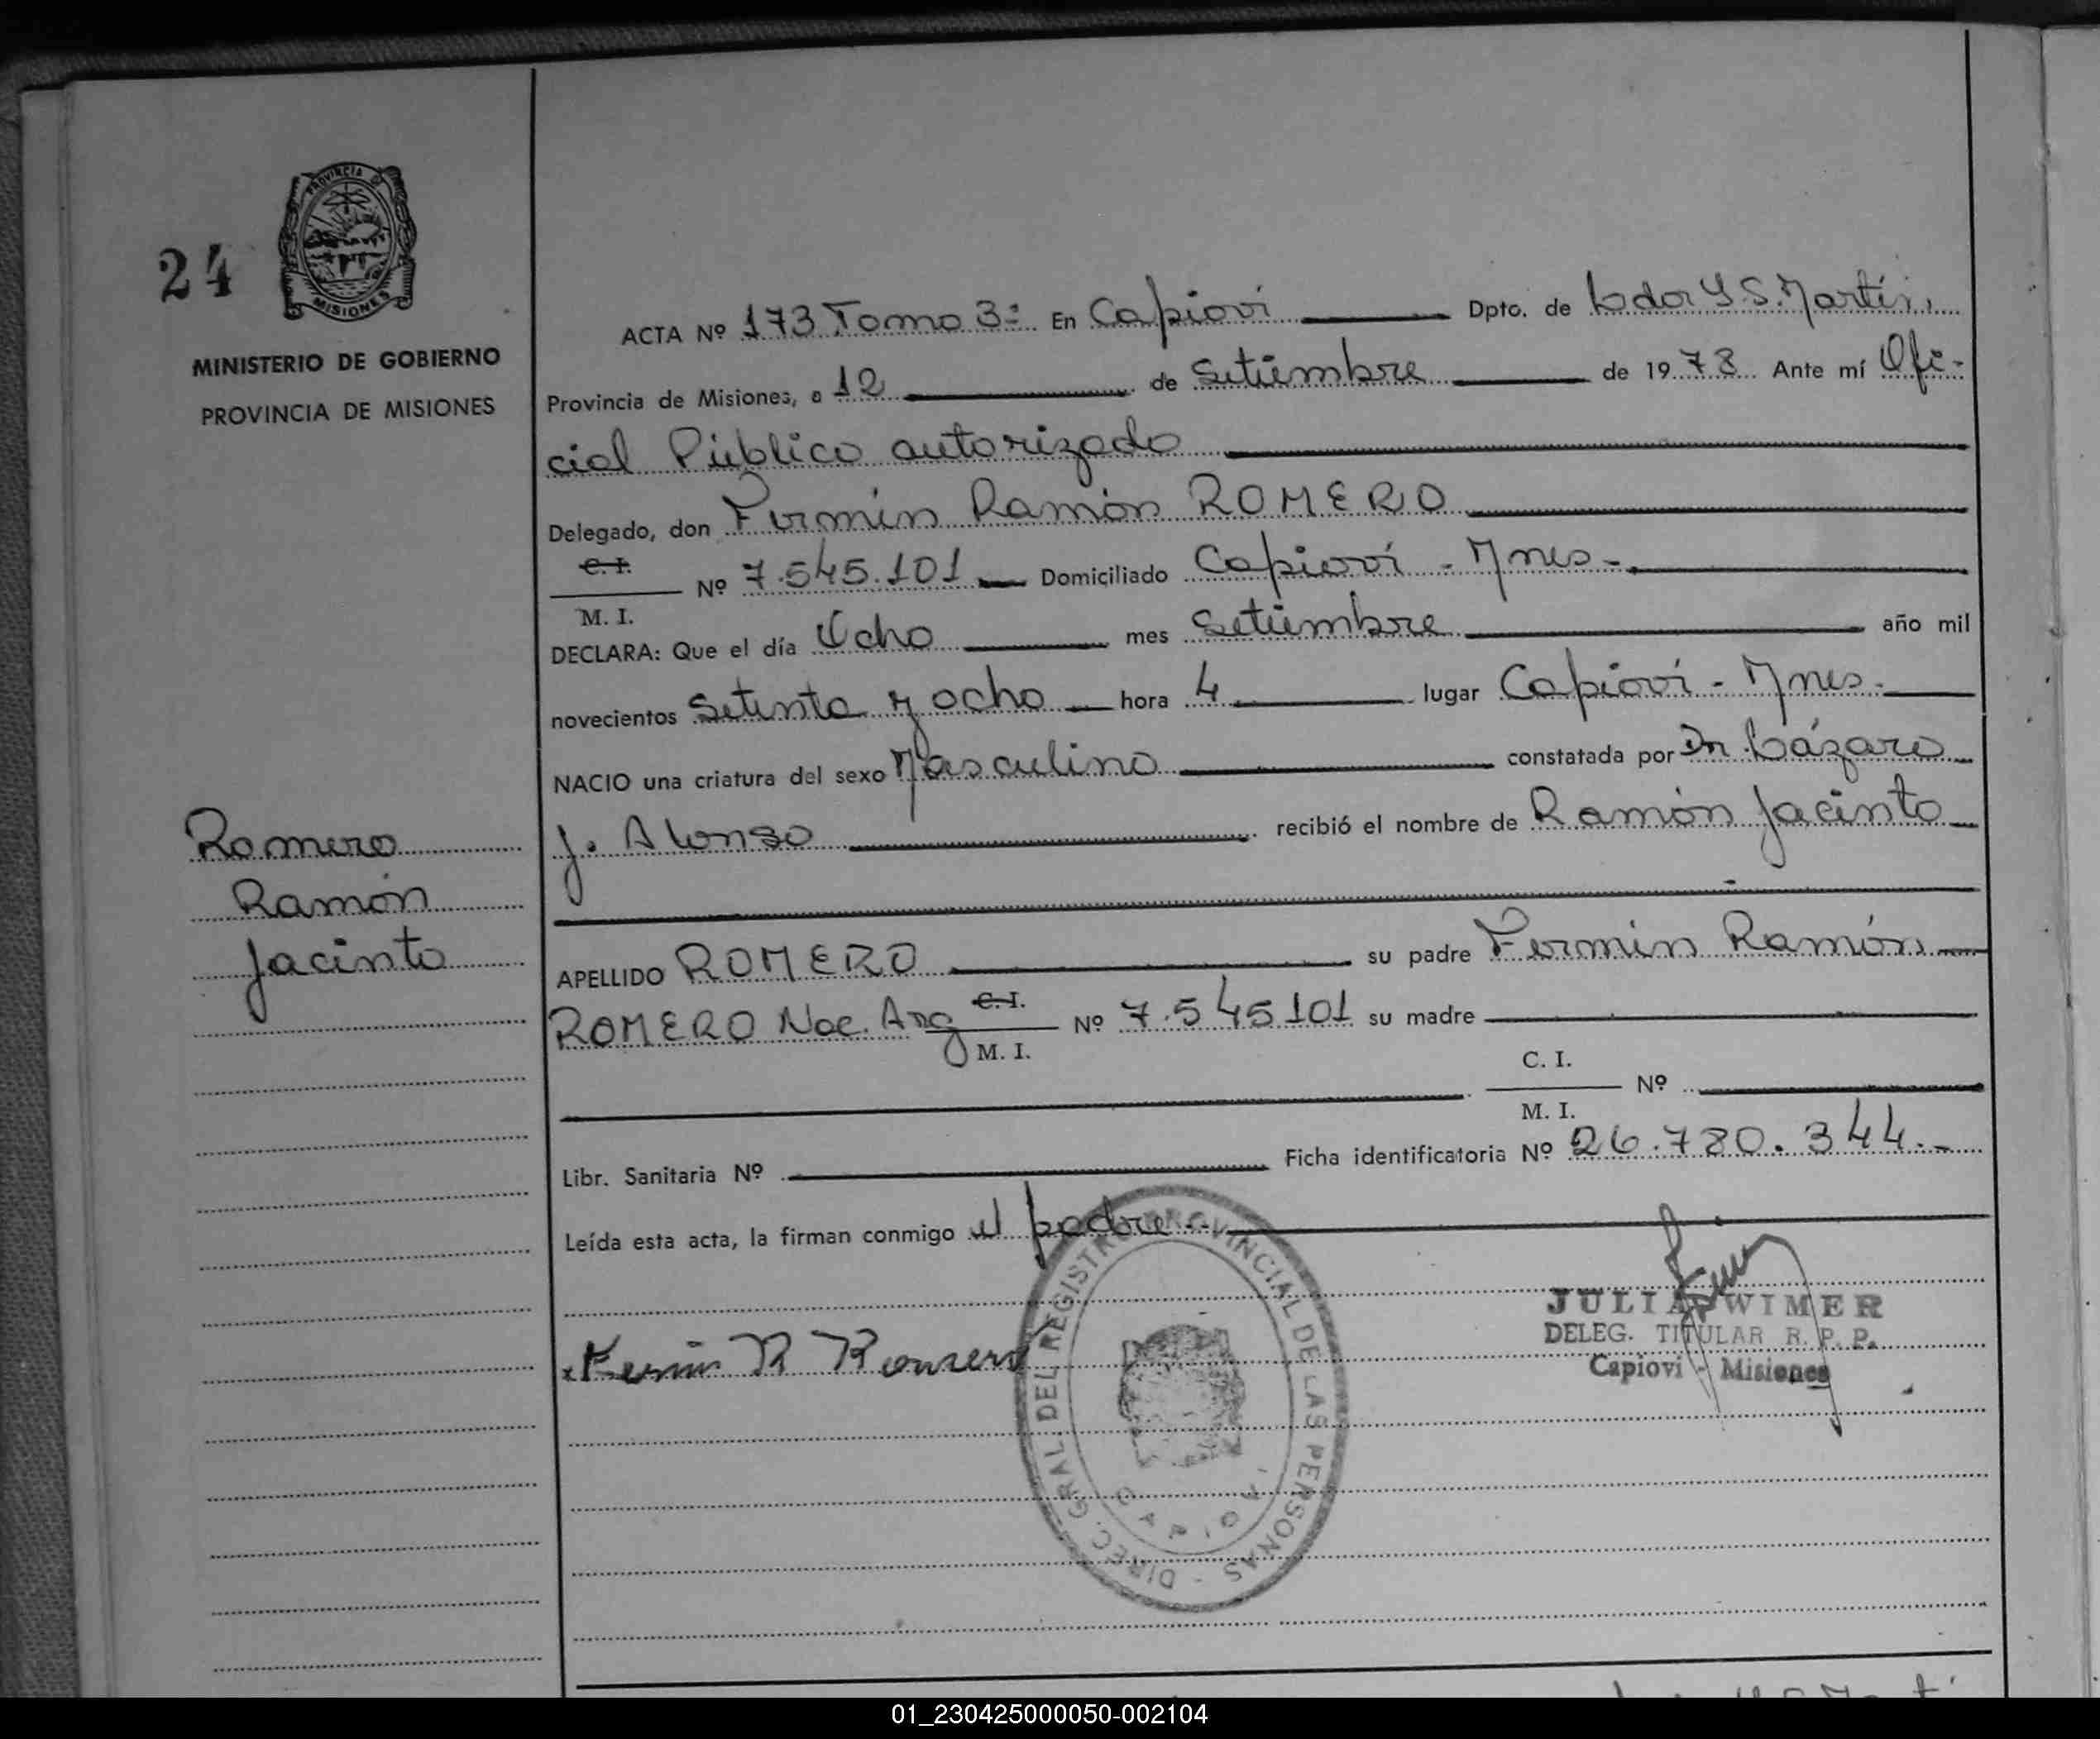 24
PROVINCIA D
MISIONES
MINISTERIO DE GOBIERNO
PROVINCIA DE MISIONES
Romero
Ramón
Jacinto
ACTA Nº 173 Tomo 3º En Capioví Dpto. de Ldor G. S. Martín,
Provincia de Misiones, a 12 de Setiembre de 1978 Ante mí Ofi-
cial Público autorizado
Delegado, don Fermín Ramón ROMERO
C. I.
Nº 7.545.101 Domiciliado Capioví - Mnes -
M. I.
DECLARA: Que el día Ocho mes Setiembre año mil
novecientos Setenta y ocho hora 4 lugar Capioví - Mnes -
NACIO una criatura del sexo Masculino constatada por Dr. Lázaro
J. Alonso recibió el nombre de Ramón Jacinto
APELLIDO ROMERO su padre Fermín Ramón
ROMERO Nac. Arg C. I. Nº 7.545101 su madre
M. I.
C. I.
Nº
M. I.
Libr. Sanitaria Nº Ficha identificatoria Nº 26.780.344.-
Leída esta acta, la firman conmigo el padre --
Fermin R Romero
JULIA WIMER
DELEG. TITULAR R. P. P.
Capiovi - Misiones
DIREC. GRAL. DEL REGISTRO PROVINCIAL DE LAS PERSONAS -
CAPIOVI
01_230425000050-002104